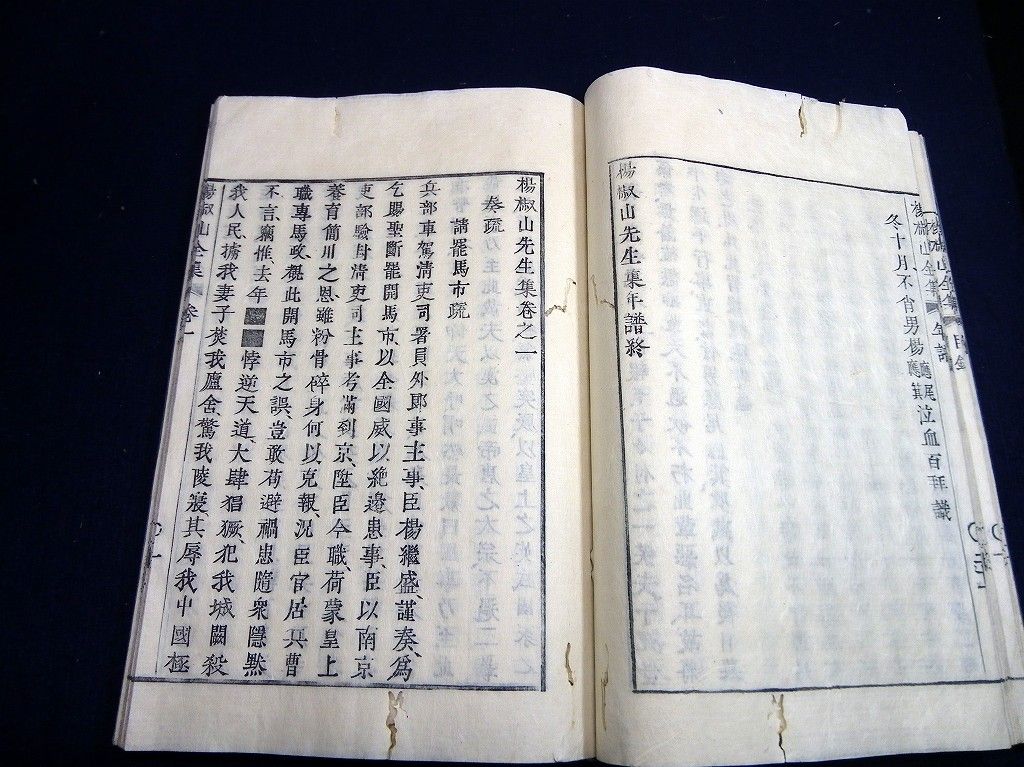 冬十月不肖男楊應尾應箕泣血百拜識
楊椒山先生集年譜終
楊椒山先生集卷之一
奏疏
請罷馬市疏
兵部車駕淸吏司署員外郎事主事、臣楊繼盛、謹奏、爲
乞賜聖斷罷開馬市、以全國威以絶邊患事、臣以南京
吏部驗封淸吏司主事考滿到京、陞臣今職、荷蒙皇上
養育簡用之恩、雖粉骨碎身何以克報、況臣官居兵曹
職專馬政、覩此開馬市之誤、豈敢苟避禍患隨衆隱黙
不言、竊惟去年■■悖逆天道、大肆猖獗、犯我城闕殺
我人民擄我妻子焚我廬舍、驚我陵寢其辱我中國極
楊椒山全集 卷一 一